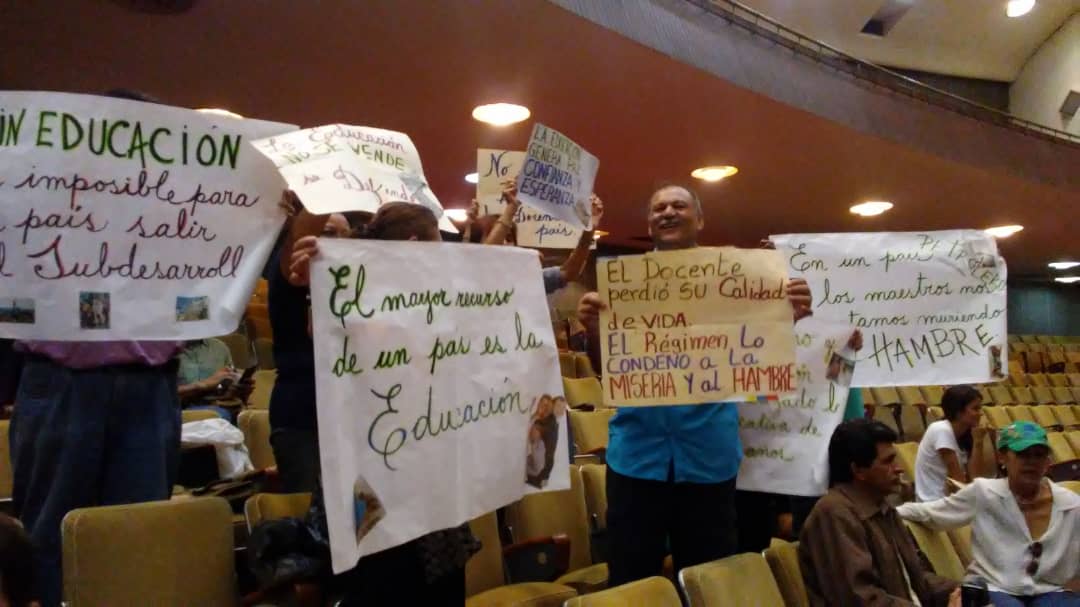 IN EDUCACIÓN
imposible para
país salir
l Subdesarroll
La Educación
NO SE VENDE
se Defiende
No
Docen
pais
LA EDUCACIÓN
GENERA PAZ
CONFIANZA Y
ESPERANZA
El mayor recurso
de un país es la
Educación
EL Docente
perdió SU Calidad
de VIDA.
EL Régimen, Lo
CONDENO a LA
MISERIA Y al HAMBRE
En un país PETROLER
los maestros nos es
tamos muriendo
HAMBRE